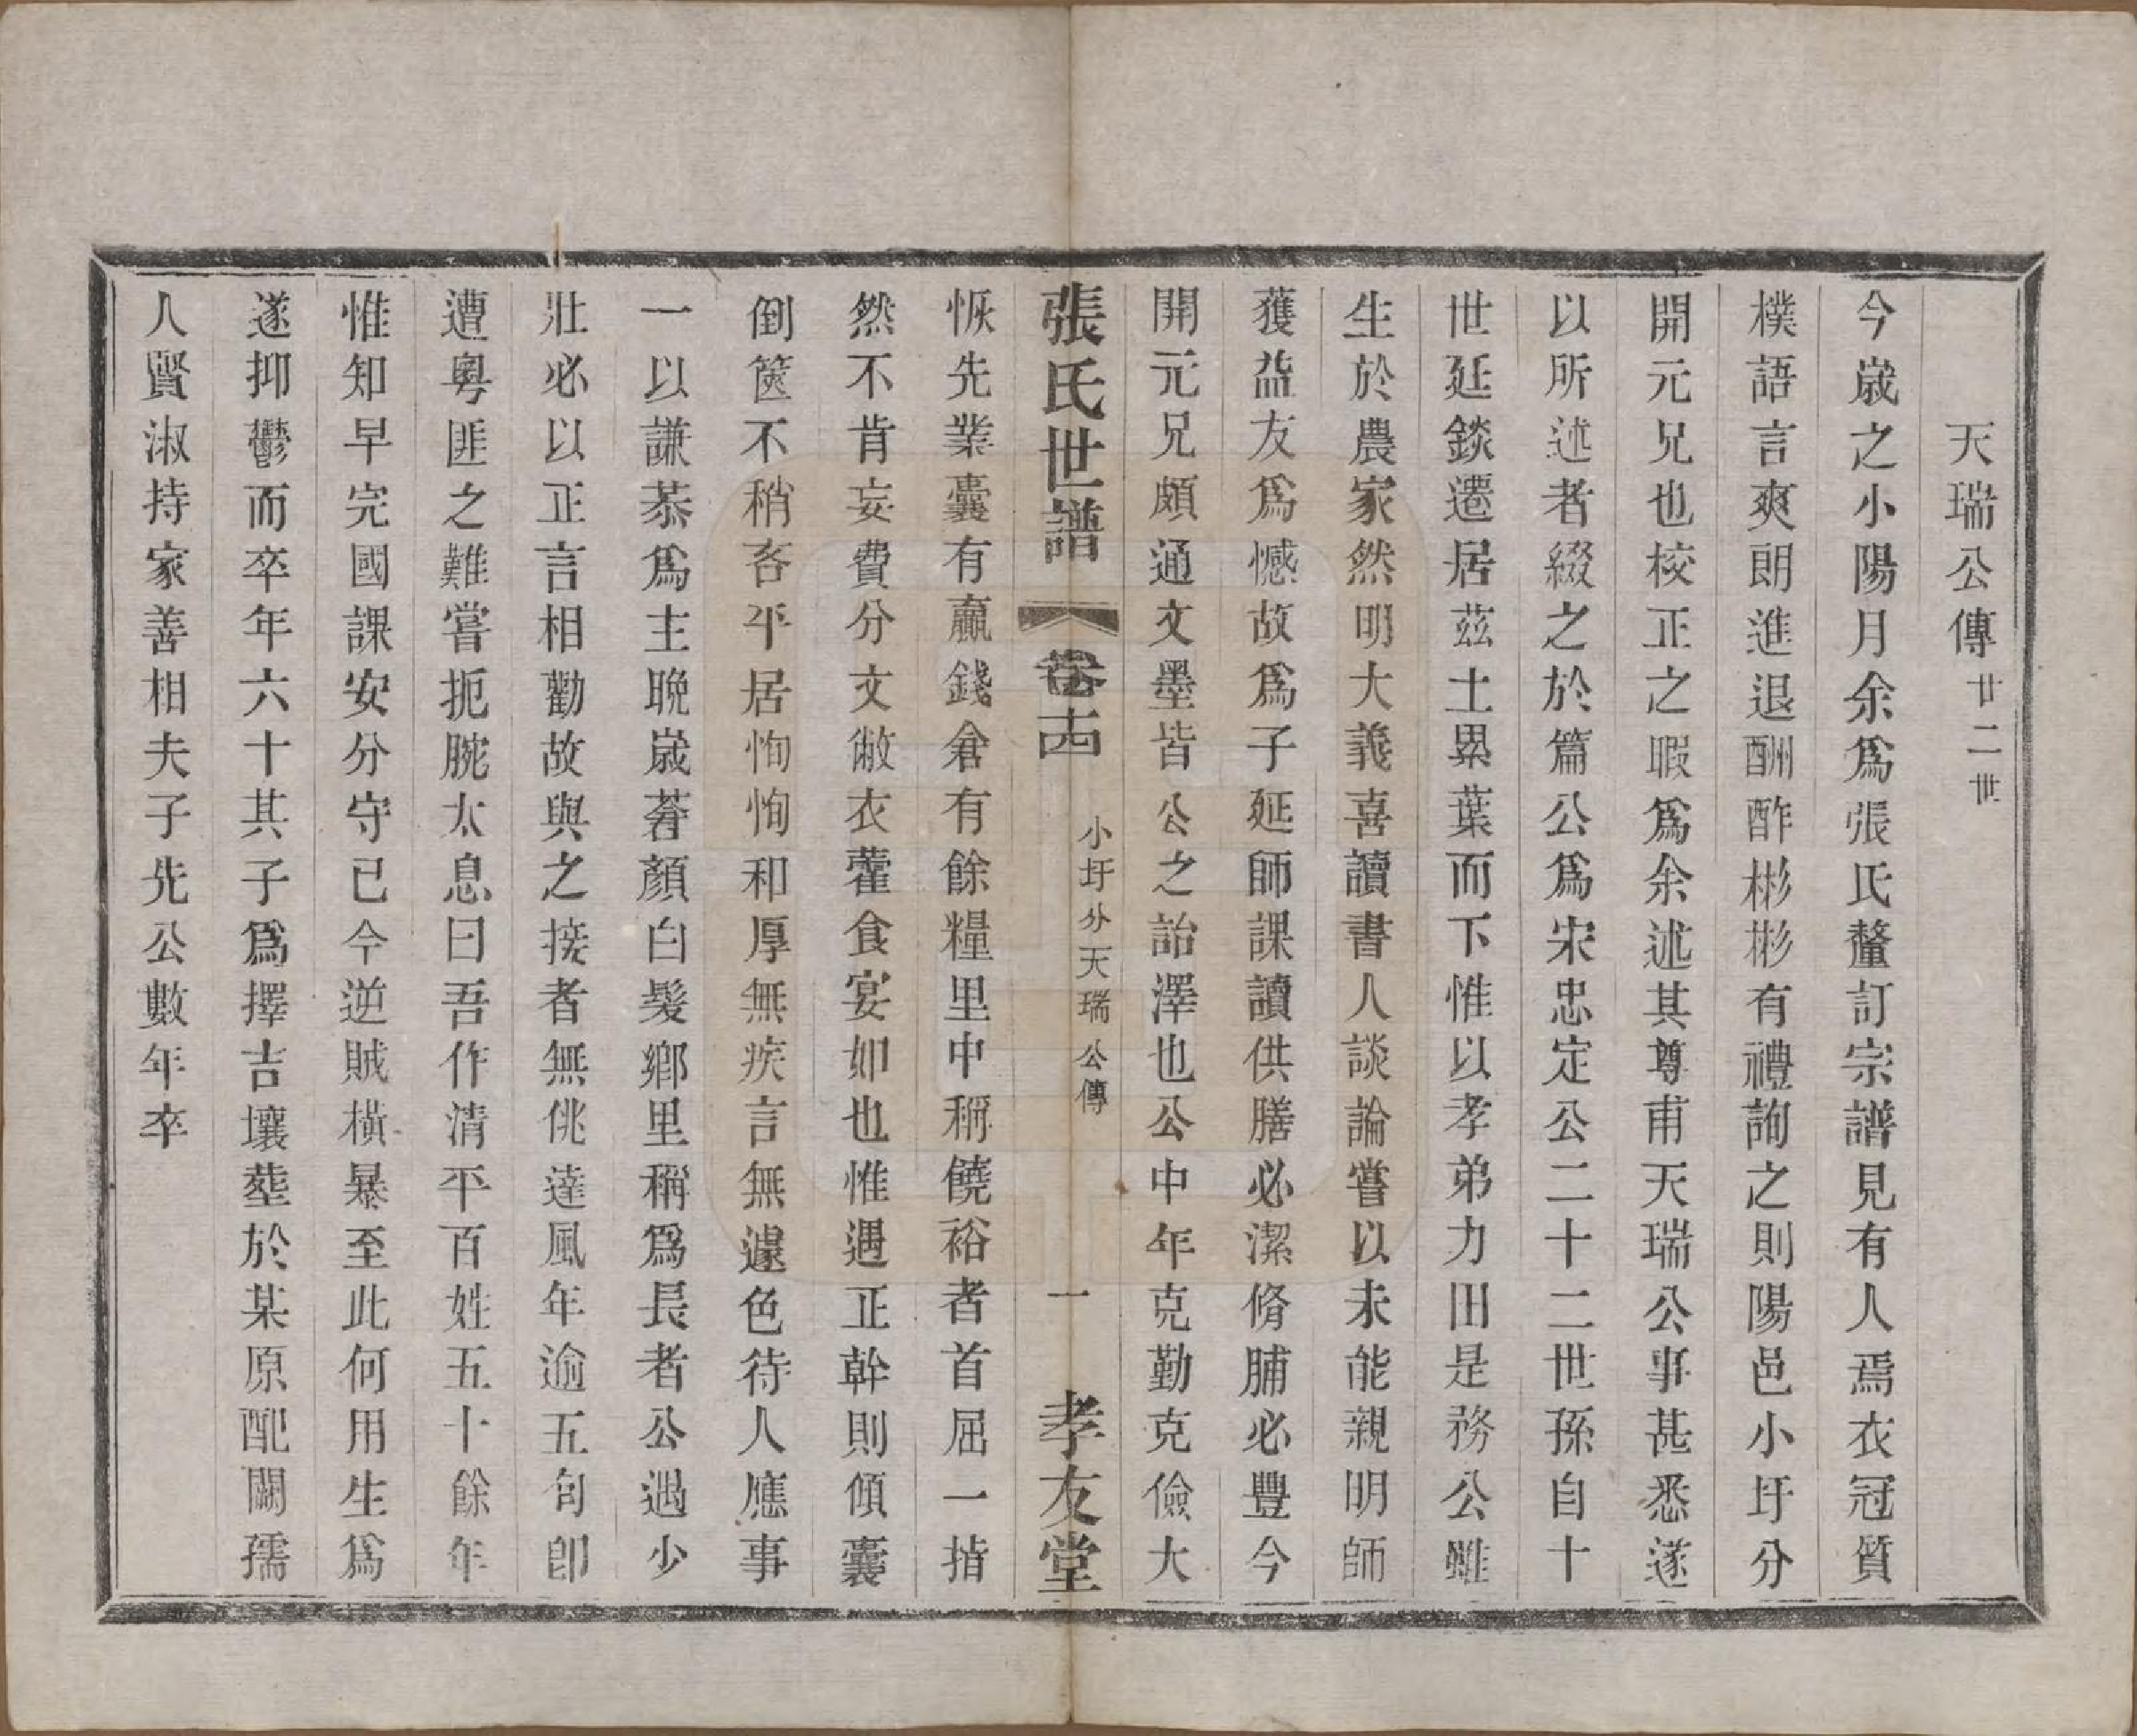 天瑞公傳廿二世
今歲之小陽月余爲張氏釐訂宗譜見有人焉衣冠質
樸語言爽朗進退酬酢彬彬有禮詢之則陽邑小圩分
開元兄也校正之暇爲余述其尊甫天瑞公事甚悉遂
以所述者綴之於篇公爲宋忠定公二十二世孫自十
世延錟遷居茲土累葉而下惟以孝弟力田是務公雖
生於農家然明大義喜讀書人談論嘗以未能親明師
獲益友爲憾故爲子延師課讀供膳必潔脩脯必豐今
開元兄頗通文墨皆公之詒澤也公中年克勤克儉大
張氏世譜 卷十四 小圩分天瑞公傳 一 孝友堂
恢先業囊有贏錢倉有餘糧里中稱饒裕者首屈一指
然不肯妄費分文敝衣藿食宴如也惟遇正幹則傾囊
倒篋不稍吝平居恂恂和厚無疾言無遽色待人應事
一以謙恭爲主晚歲蒼顏白髮鄉里稱爲長者公遇少
壯必以正言相勸故與之接者無佻達風年逾五旬卽
遭粵匪之難嘗扼腕太息曰吾作清平百姓五十餘年
惟知早完國課安分守己今逆賊橫暴至此何用生爲
遂抑鬱而卒年六十其子爲擇吉壤塟於某原配闞孺
人賢淑持家善相夫子先公數年卒